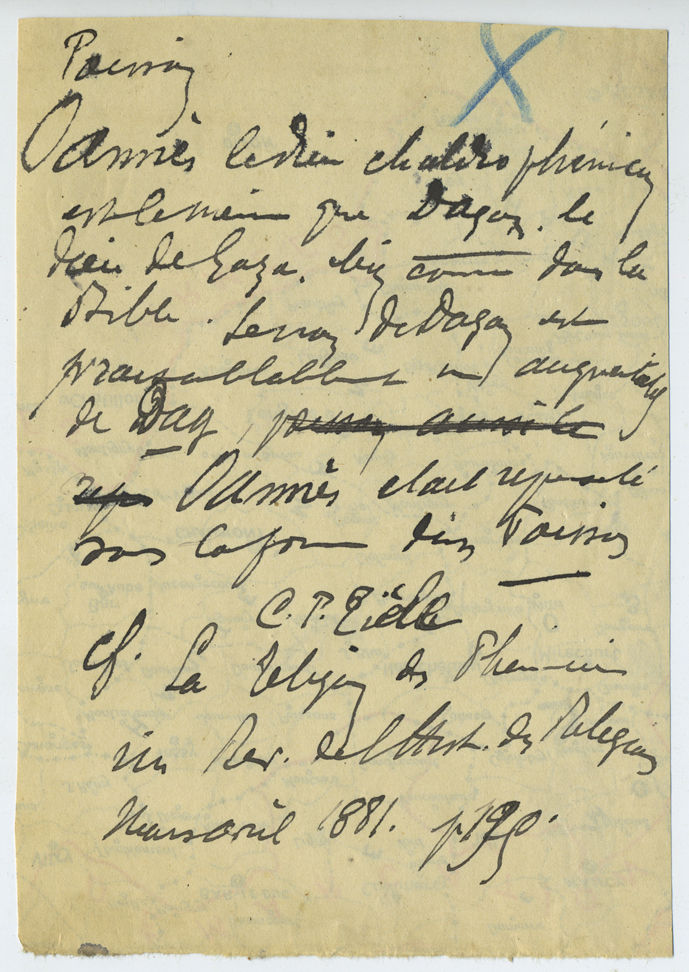 Poisson
Oannès le dieu chaldéo phénicien
est le même que Dagon. le
dieu de Gaza. bien connu dans la
Bible. Le nom de Dagon est
vraisemblablement un augmentatif
de Dag, poisson aussi le
rep Oannès était représenté
sous la forme d'un Poisson
C. P. Tiele
cf. La Religion des Phéniciens
in Rev. de l'Hist. des Religions
Mars avril 1881. p.